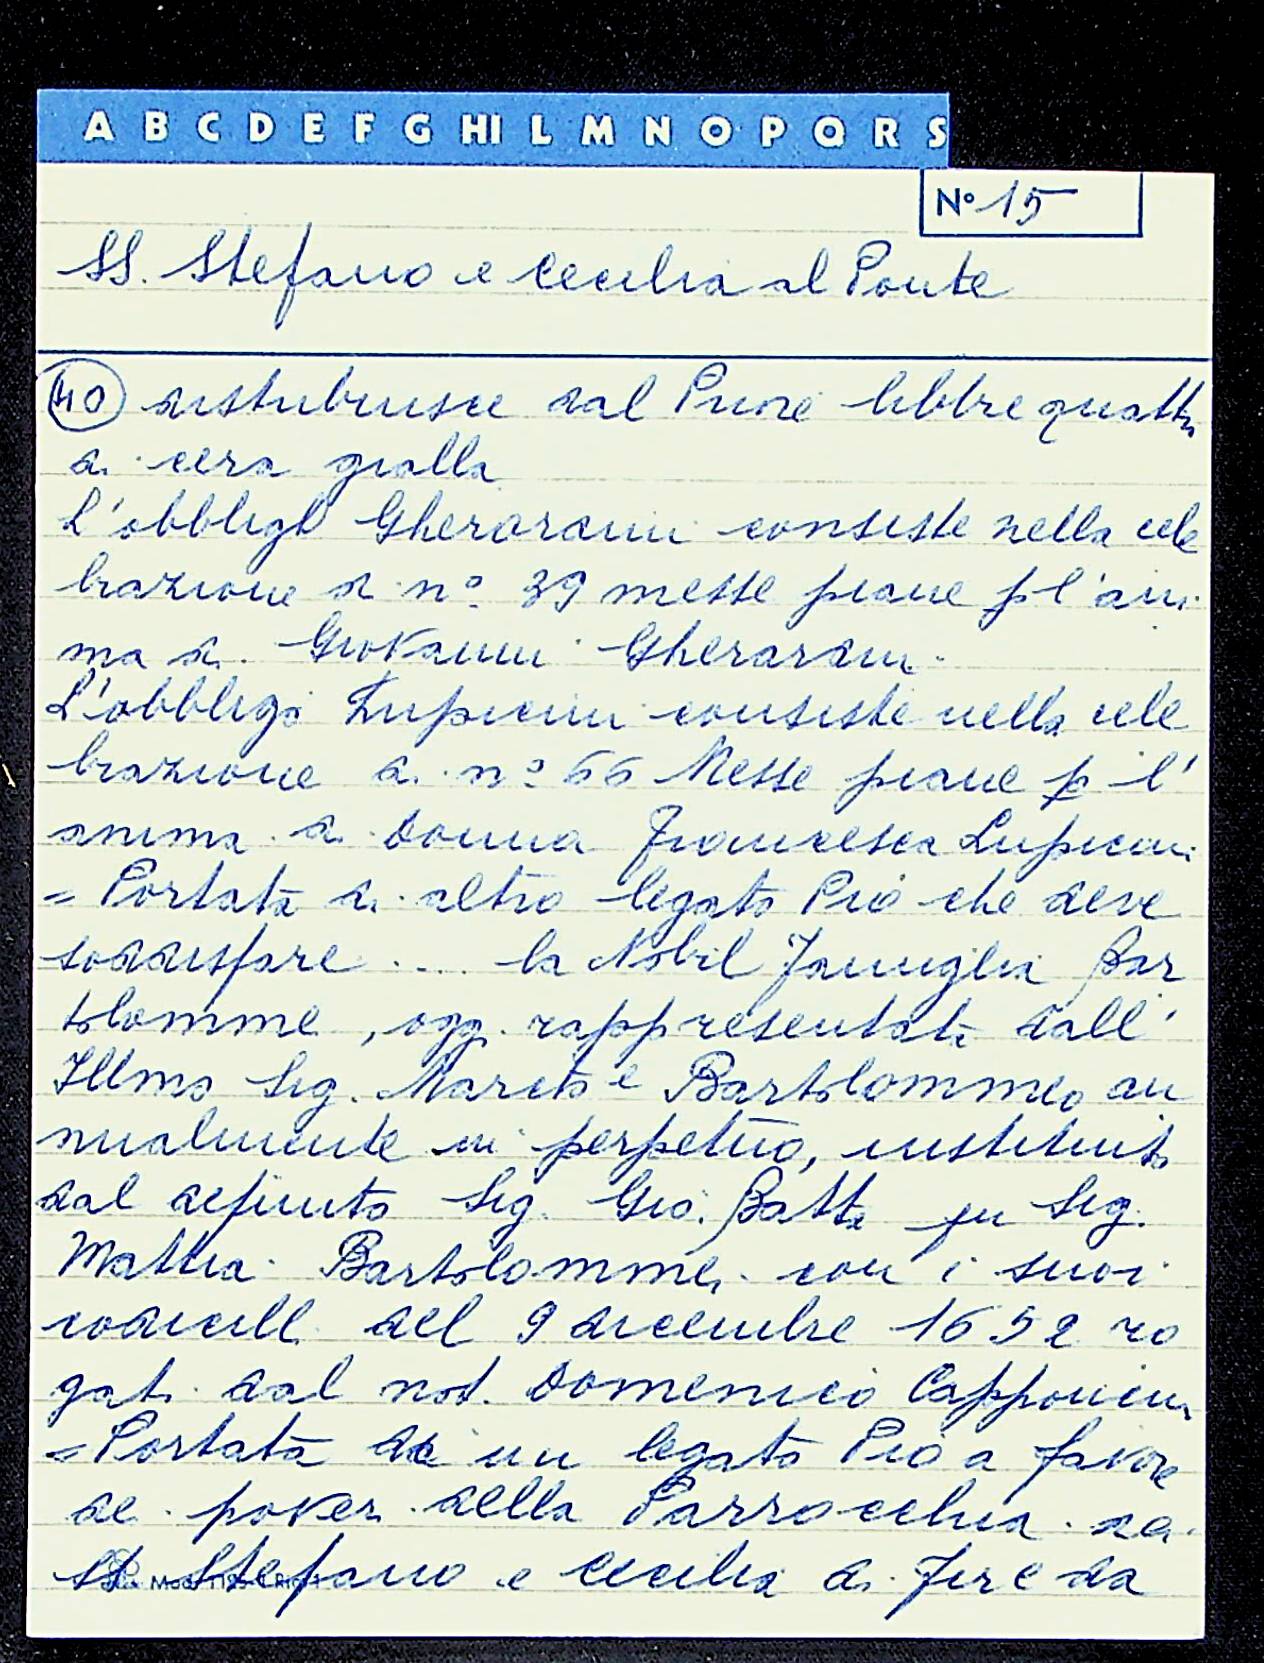 A B C D E F G HI L M N O P Q R S
N° 15
SS. Stefano e Cecilia al Ponte
40 distribuisce dal Priore libbre quattro
di cera gialla
L'obbligo Gherardini consiste nella cele
brazione di n° 39 messe piane p l'ani
ma di Giovanni Gherardini
L'obbligo Lupicini consiste nella cele
brazione di n° 66 Messe piane p l'
anima di Donna Francesca Lupicini
= Portata di altro legato Pio che deve
soddisfare .... la Nobil Famiglia Bar
tolommei, oggi rappresentata dall'
Illmo Sig. Marchse Bartolommeo an
nualmente in perpetuo, instituito
dal defunto Sig. Gio. Batta fu Sig.
Mattia Bartolommei con i suoi
codicilli del 9 dicembre 1652 ro
gati dal not. Domenico Capponcini
= Portata di un legato Pio a favore
de poveri della Parrocchia di
SS Stefano e Cecilia di Fire da
Mod.